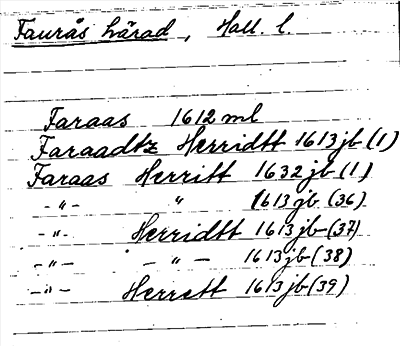 Faurås härad, Hall. l.
Faraas 1612 ml
Faraadtz Herridtt 1613 jb (1)
Faraas Herritt 1632 jb (1)
-"- " 1613 jb (36)
-"- Herridtt 1613 jb (37)
-"- -"- 1613 jb (38)
-"- Herrett 1613 jb (39)